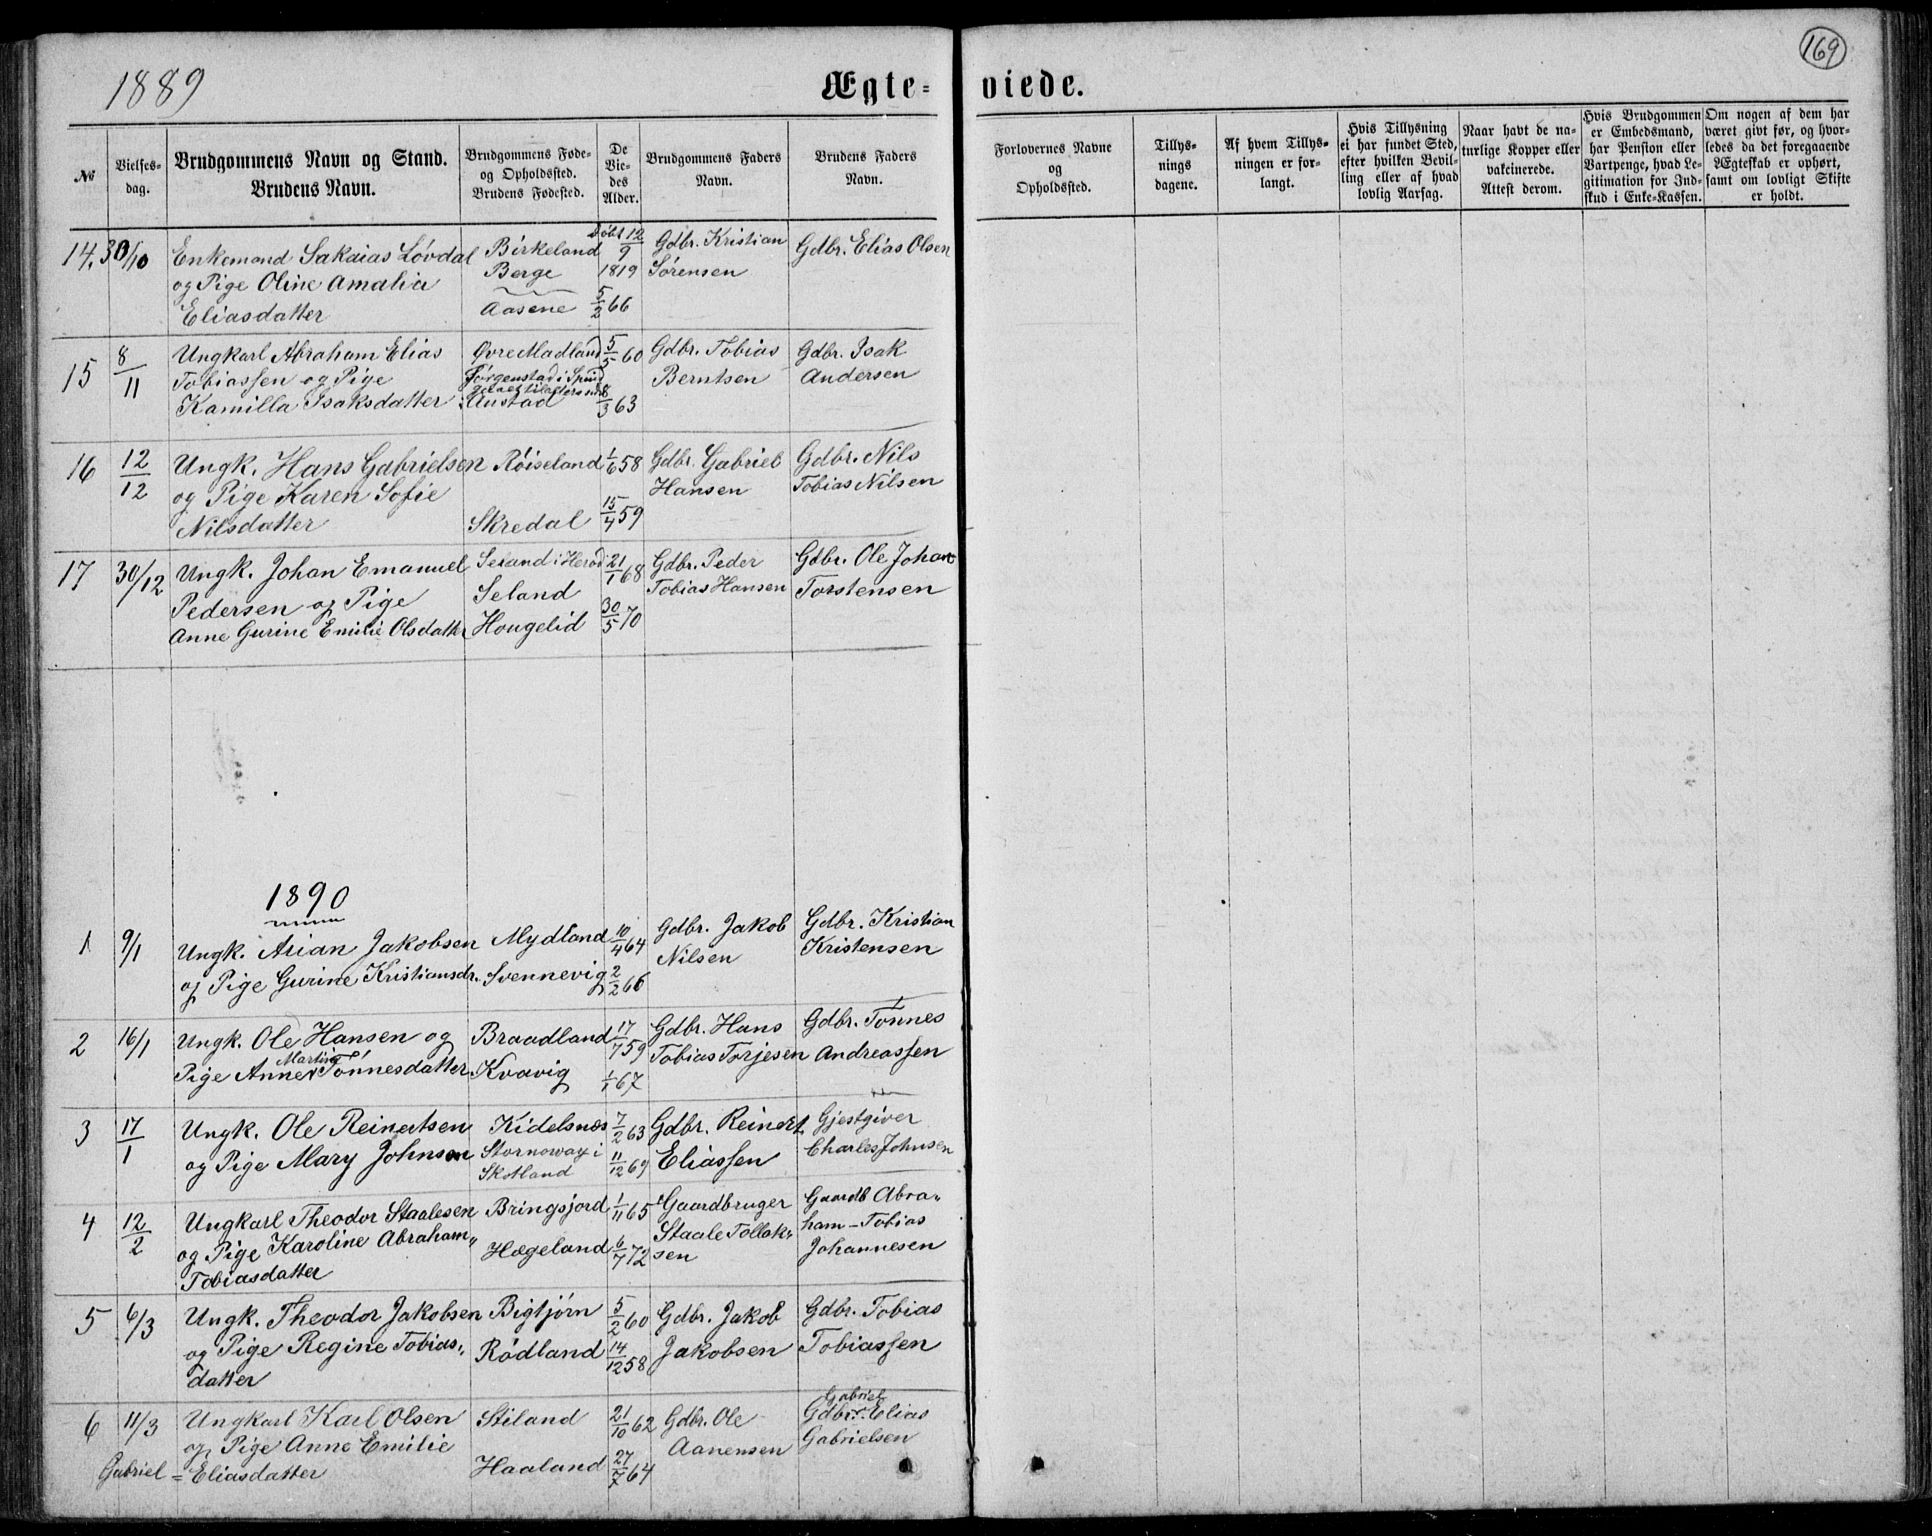 169
1889
Ægte- viede.
No
Vielses-
dag.
Brudgommens Navn og Stand.
Brudens Navn.
Brudgommens Føde-
og Opholdssted.
Brudens Fødested.
De
Vie-
des
Alder.
Brudgommens Faders
Navn.
Brudens Faders
Navn.
Forlovernes Navne
og
Opholdssted.
Tillys-
nings
dagene.
Af hvem Tillys-
ningen er for-
langt.
Hvis Tillysning
ei har fundet Sted,
efter hvilken Bevil-
ling eller af hvad
lovlig Aarsag.
Naar havt de na-
turlige Kopper eller
vakcinerede.
Attest derom.
Hvis Brudgommen
er Embedsmand,
har Pension eller
Vartpenge, hvad Le-
gitimation for Ind-
skud i Enke-Kassen.
Om nogen af dem har
været givt før, og hvor-
ledes da det foregaaende
Ægteskab er ophørt,
samt om lovligt Skifte
er holdt.
14. 30/10 Enkemand Sakaias Lövdal Birkeland Döbt 12/9 Gdbr. Kristian Gdbr. Elias Olsen
og Pige Oline Amalia Berge 1819 Sörensen
Eliasdatter Aasene 5/2 66
15 8/11 Ungkarl Abraham Elias Øvre Madland 5/5 60 Gdbr. Tobias Gdbr. Isak
Tobiassen og Pige Jörgenstad i Spind Berntsen Andersen
Kamilla Isaksdatter Austad 8/3 63
16 12/12 Ungk. Hans Gabrielsen Röiseland 1/6 58 Gdbr. Gabriel Gdbr. Nils
og Pige Karen Sofie Hansen Tobias Nilsen
Nilsdatter Skredal 15/4 59
17 30/12 Ungk. Johan Emanuel Seland i Herad 21/1 68 Gdbr. Peder Gdbr. Ole Johan
Pedersen og Pige Seland Tobias Hansen Torstensen
Anne Gurine Emilie Olsdatter Hougelid 30/5 70
1890
1 9/1 Ungk. Arian Jakobsen Mydland 10/4 64 Gdbr. Jakob Gdbr. Kristian
og Pige Gurine Kristiansdr. Svennevig 2/2 66 Nilsen Kristensen
2 16/1 Ungk. Ole Hansen og Braadland 17/7 59 Gdbr. Hans Gdbr. Tönnes
Pige Anne Martine Tönnesdatter Kvavig 1/1 67 Tobias Torjesen Andreassen
3 17/1 Ungk. Ole Reinertsen Kidelsnæs 7/2 63 Gdbr. Reinert Gjestgiver
og Pige Mary Johnson Stornoway i 11/12 69 Eliassen Charles Johnsen
Skotland
4 12/2 Ungkarl Theodor Staalesen Bringsjord 1/11 65 Gaardbruger Gaardb Abra„
og Pige Karoline Abraham„ Hægeland 6/7 72 Staale Tollak„ ham-Tobias
Tobiasdatter sen Johannesen
5 6/3 Ungk. Theodor Jakobsen Bigtjörn 5/2 60 Gdbr. Jakob Gdbr. Tobias
og Pige Regine Tobias„ Rödland 14/12 58 Jakobsen Tobiassen
datter
6 11/3 Ungkarl Karl Olsen Stiland 21/10 62 Gdbr. Ole Gdbr. Gabriel Elias
og Pige Anne Emilie Aanensen Gabrielsen
Gabriel = Eliasdatter Haaland 27/7 64